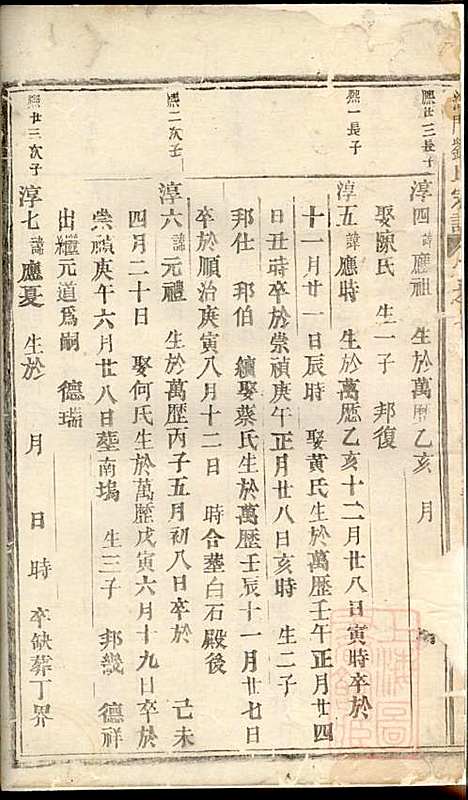 劉氏宗譜
熈廿三長子
淳四諱應祖 生於萬曆乙亥 月
娶陳氏 生一子 邦復
熈一長子
淳五諱應時 生於萬歷乙亥十二月廿八日寅時卒於
十一月廿一日辰時 娶黄氏生於萬歷壬午正月廿四
日丑時卒於崇禎庚午正月廿八日亥時 生二子
邦仕 邦伯 續娶葉氏生於萬歷壬辰十一月廿七日
卒於順治庚寅八月十二日 時合塟白石殿後
熈二次子
淳六諱元禮 生於萬歷丙子五月初八日卒於 己未
四月二十日 娶何氏生於萬歷戊寅六月十九日卒於
崇禎庚午六月廿八日塟南塢 生三子 邦畿 德祥
出繼元道爲嗣 德瑞
熈廿三次子
淳七諱應夏 生於 月 日 時 卒缺葬丁界